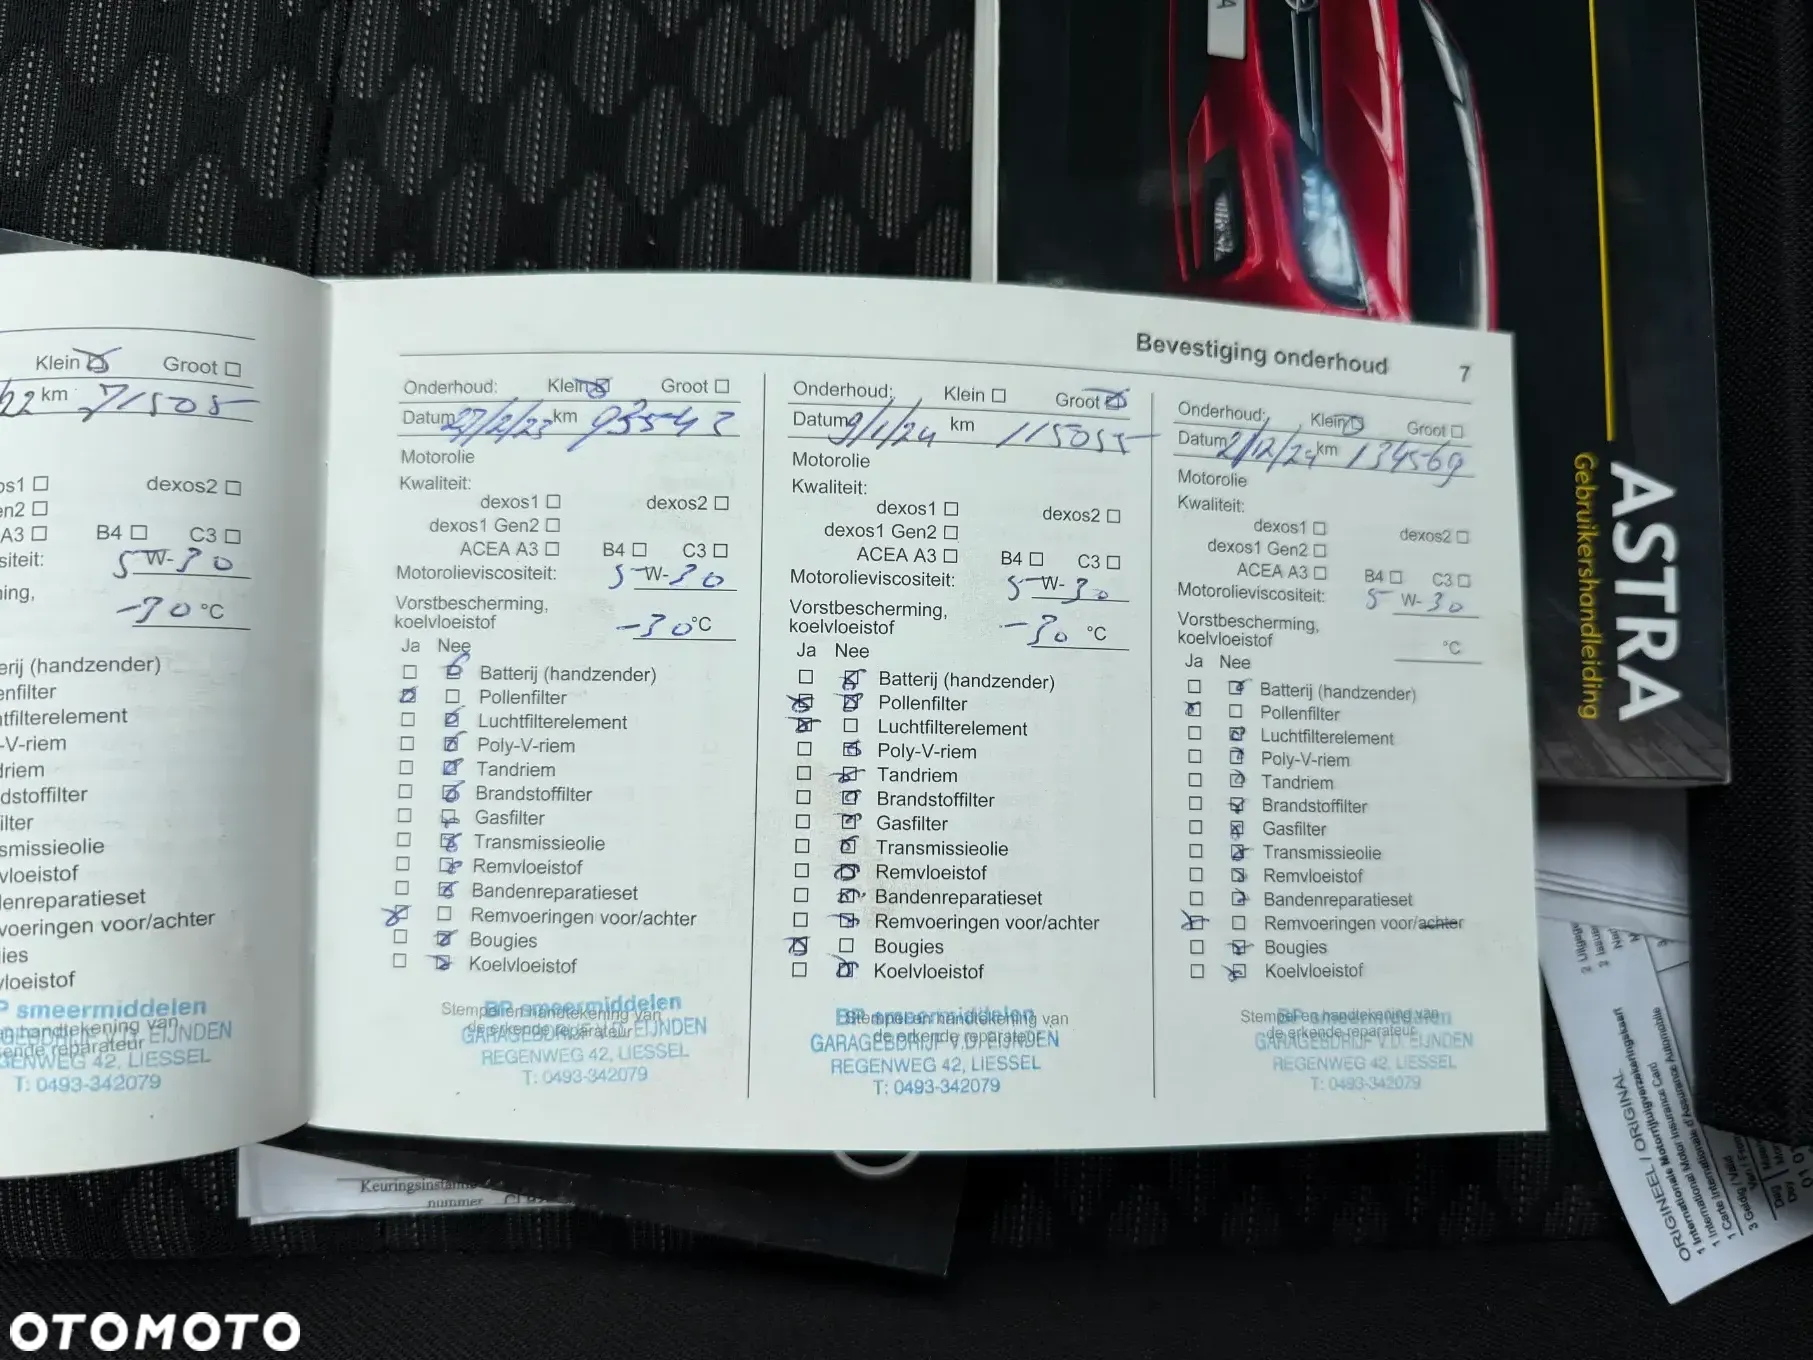 Bevestiging onderhoud 7
Klein Groot
km 71505
dexos2
B4 C3
5 W-30
-30 °C
(handzender)
Onderhoud: Klein Groot
Datum 27/2/23 km 93543
Motorolie
Kwaliteit:
dexos1 dexos2
dexos1 Gen2
ACEA A3 B4 C3
Motorolieviscositeit: 5 W-30
Vorstbescherming,
koelvloeistof -30 °C
Ja Nee
Batterij (handzender)
Pollenfilter
Luchtfilterelement
Poly-V-riem
Tandriem
Brandstoffilter
Gasfilter
Transmissieolie
Remvloeistof
Bandenreparatieset
Remvoeringen voor/achter
Bougies
Koelvloeistof
Stempel en handtekening van
de erkende reparateur
BP smeermiddelen
GARAGEBEDRIJF V.D. EIJNDEN
REGENWEG 42, LIESSEL
T: 0493-342079
Onderhoud: Klein Groot
Datum 9/1/24 km 115055
Motorolie
Kwaliteit:
dexos1 dexos2
dexos1 Gen2
ACEA A3 B4 C3
Motorolieviscositeit: 5 W-30
Vorstbescherming,
koelvloeistof -30 °C
Ja Nee
Batterij (handzender)
Pollenfilter
Luchtfilterelement
Poly-V-riem
Tandriem
Brandstoffilter
Gasfilter
Transmissieolie
Remvloeistof
Bandenreparatieset
Remvoeringen voor/achter
Bougies
Koelvloeistof
Stempel en handtekening van
de erkende reparateur
BP smeermiddelen
GARAGEBEDRIJF V.D. EIJNDEN
REGENWEG 42, LIESSEL
T: 0493-342079
Onderhoud: Klein Groot
Datum 2/12/24 km 134569
Motorolie
Kwaliteit:
dexos1 dexos2
dexos1 Gen2
ACEA A3 B4 C3
Motorolieviscositeit: 5 W-30
Vorstbescherming,
koelvloeistof °C
Ja Nee
Batterij (handzender)
Pollenfilter
Luchtfilterelement
Poly-V-riem
Tandriem
Brandstoffilter
Gasfilter
Transmissieolie
Remvloeistof
Bandenreparatieset
Remvoeringen voor/achter
Bougies
Koelvloeistof
Stempel en handtekening van
de erkende reparateur
BP smeermiddelen
GARAGEBEDRIJF V.D. EIJNDEN
REGENWEG 42, LIESSEL
T: 0493-342079
smeermiddelen
EIJNDEN
42, LIESSEL
T: 0493-342079
ASTRA
Gebruikershandleiding
ORIGINEEL / ORIGINAL
1 Internationale Motorrijtuigverzekeringskaart
1 International Motor Insurance Card
1 Carte Internationale d'Assurance Automobile
nummer
OTOMOTO